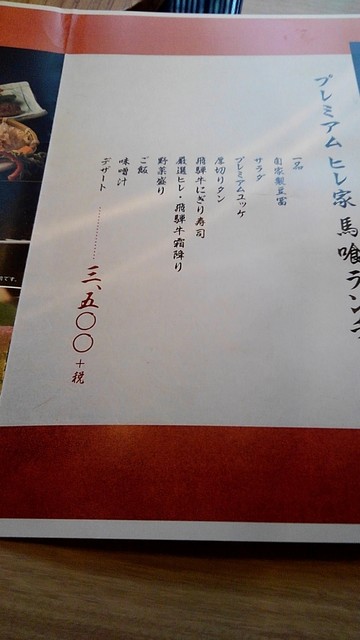 プレミアム ヒレ家 馬喰ランチ
一品
自家製豆富
サラダ
プレミアムユッケ
厚切りタン
飛騨牛にぎり寿司
厳選ヒレ・飛騨牛霜降り
野菜盛り
ご飯
味噌汁
デザート
三、五〇〇+税